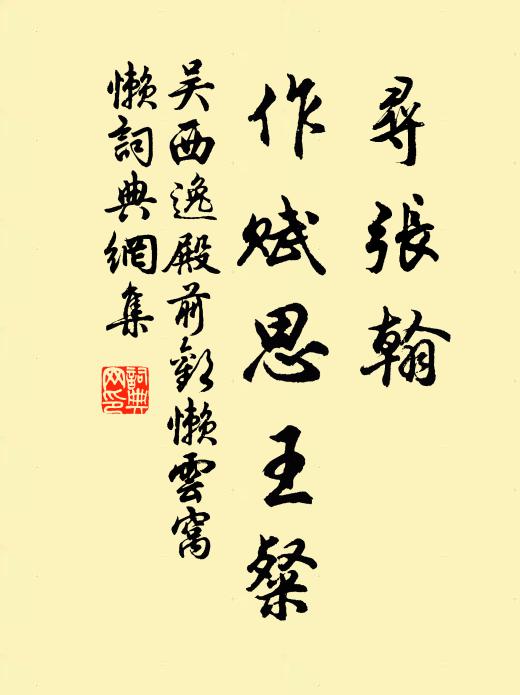 尋張翰
作賦思王粲
吳西逸殿前歡懶雲窩
懶詞典網集
詞典網印